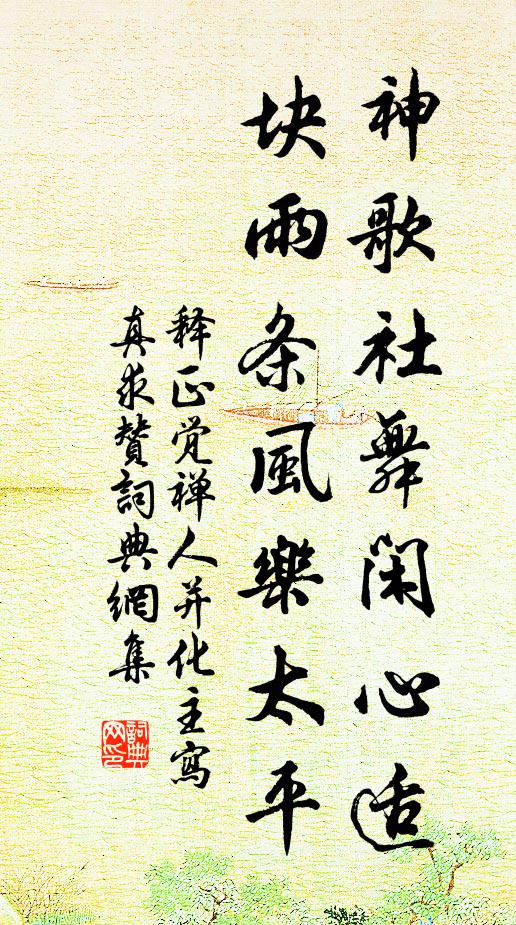 神歌社舞闲心适
块雨条风樂太平
释正觉禅人并化主寫
真求赞詞典網集
詞典网印